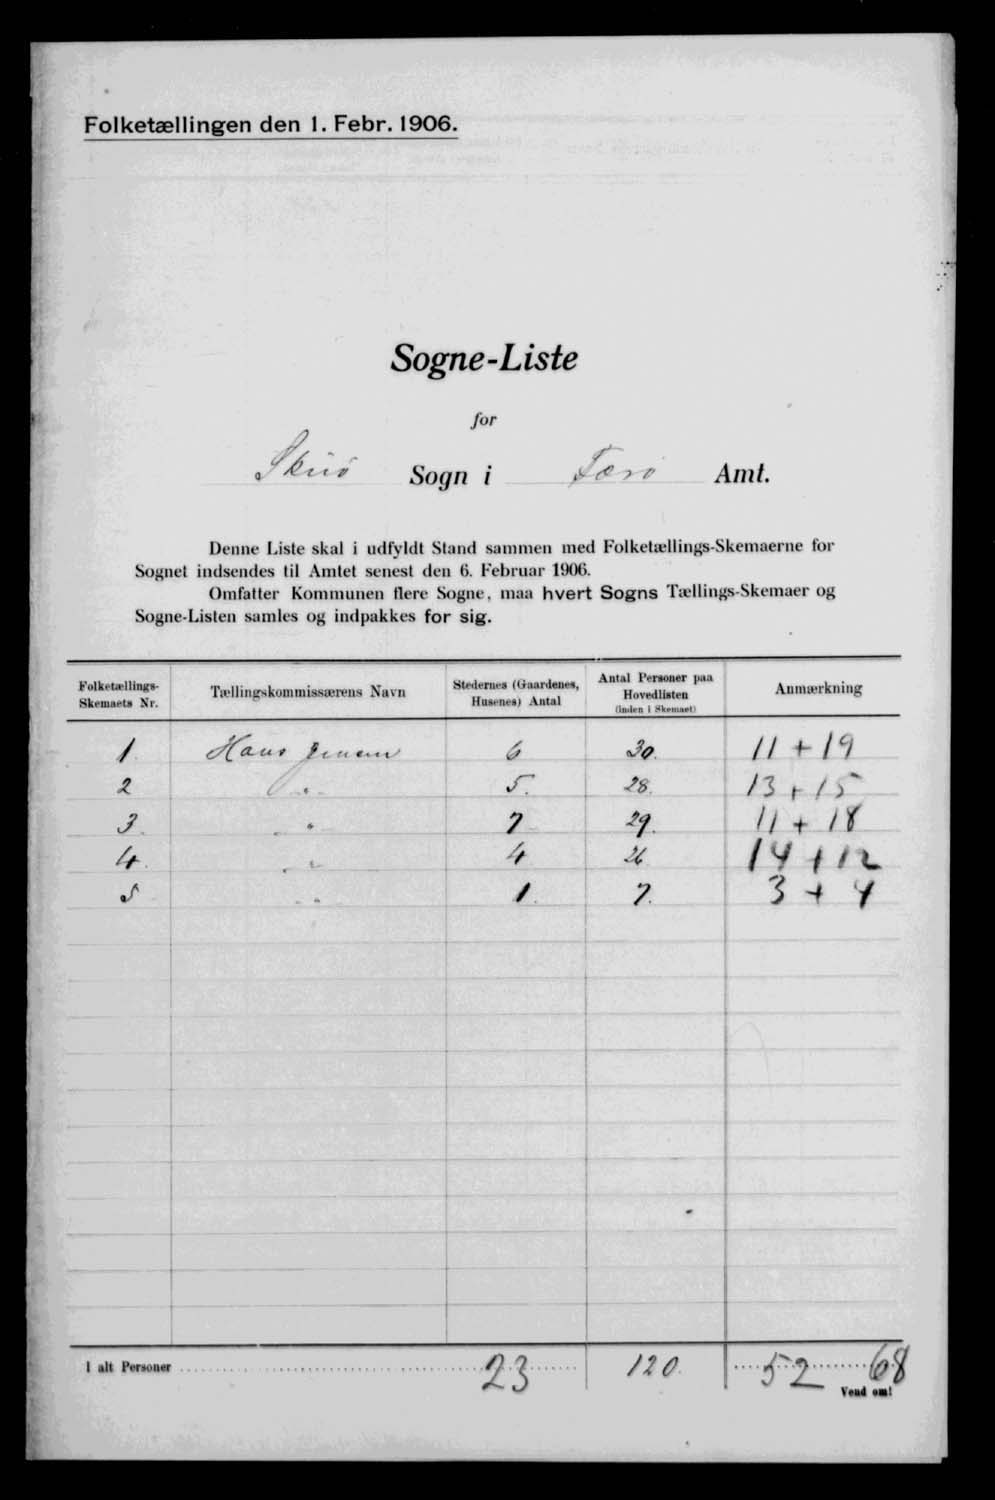 Folketællingen den 1. Febr. 1906.
Sogne-Liste
for
Skuö Sogn i Færö Amt.
Denne Liste skal i udfyldt Stand sammen med Folketællings-Skemaerne for
Sognet indsendes til Amtet senest den 6. Februar 1906.
Omfatter Kommunen flere Sogne, maa hvert Sogns Tællings-Skemaer og
Sogne-Listen samles og indpakkes for sig.
Folketællings-Skemaets Nr. Tællingskommissærens Navn Stedernes (Gaardenes, Husenes) Antal Antal Personer paa Hovedlisten (Inden i Skemaet) Anmærkning
1 Hans Jensen 6 30. 11 + 19
2 - " - 5. 28. 13 + 15
3. - " 7 29. 11 + 18
4. - " 4 26 14 + 12
5 - " - 1. 7. 3 + 4
I alt Personer 23 120. 52 68
Vend om!